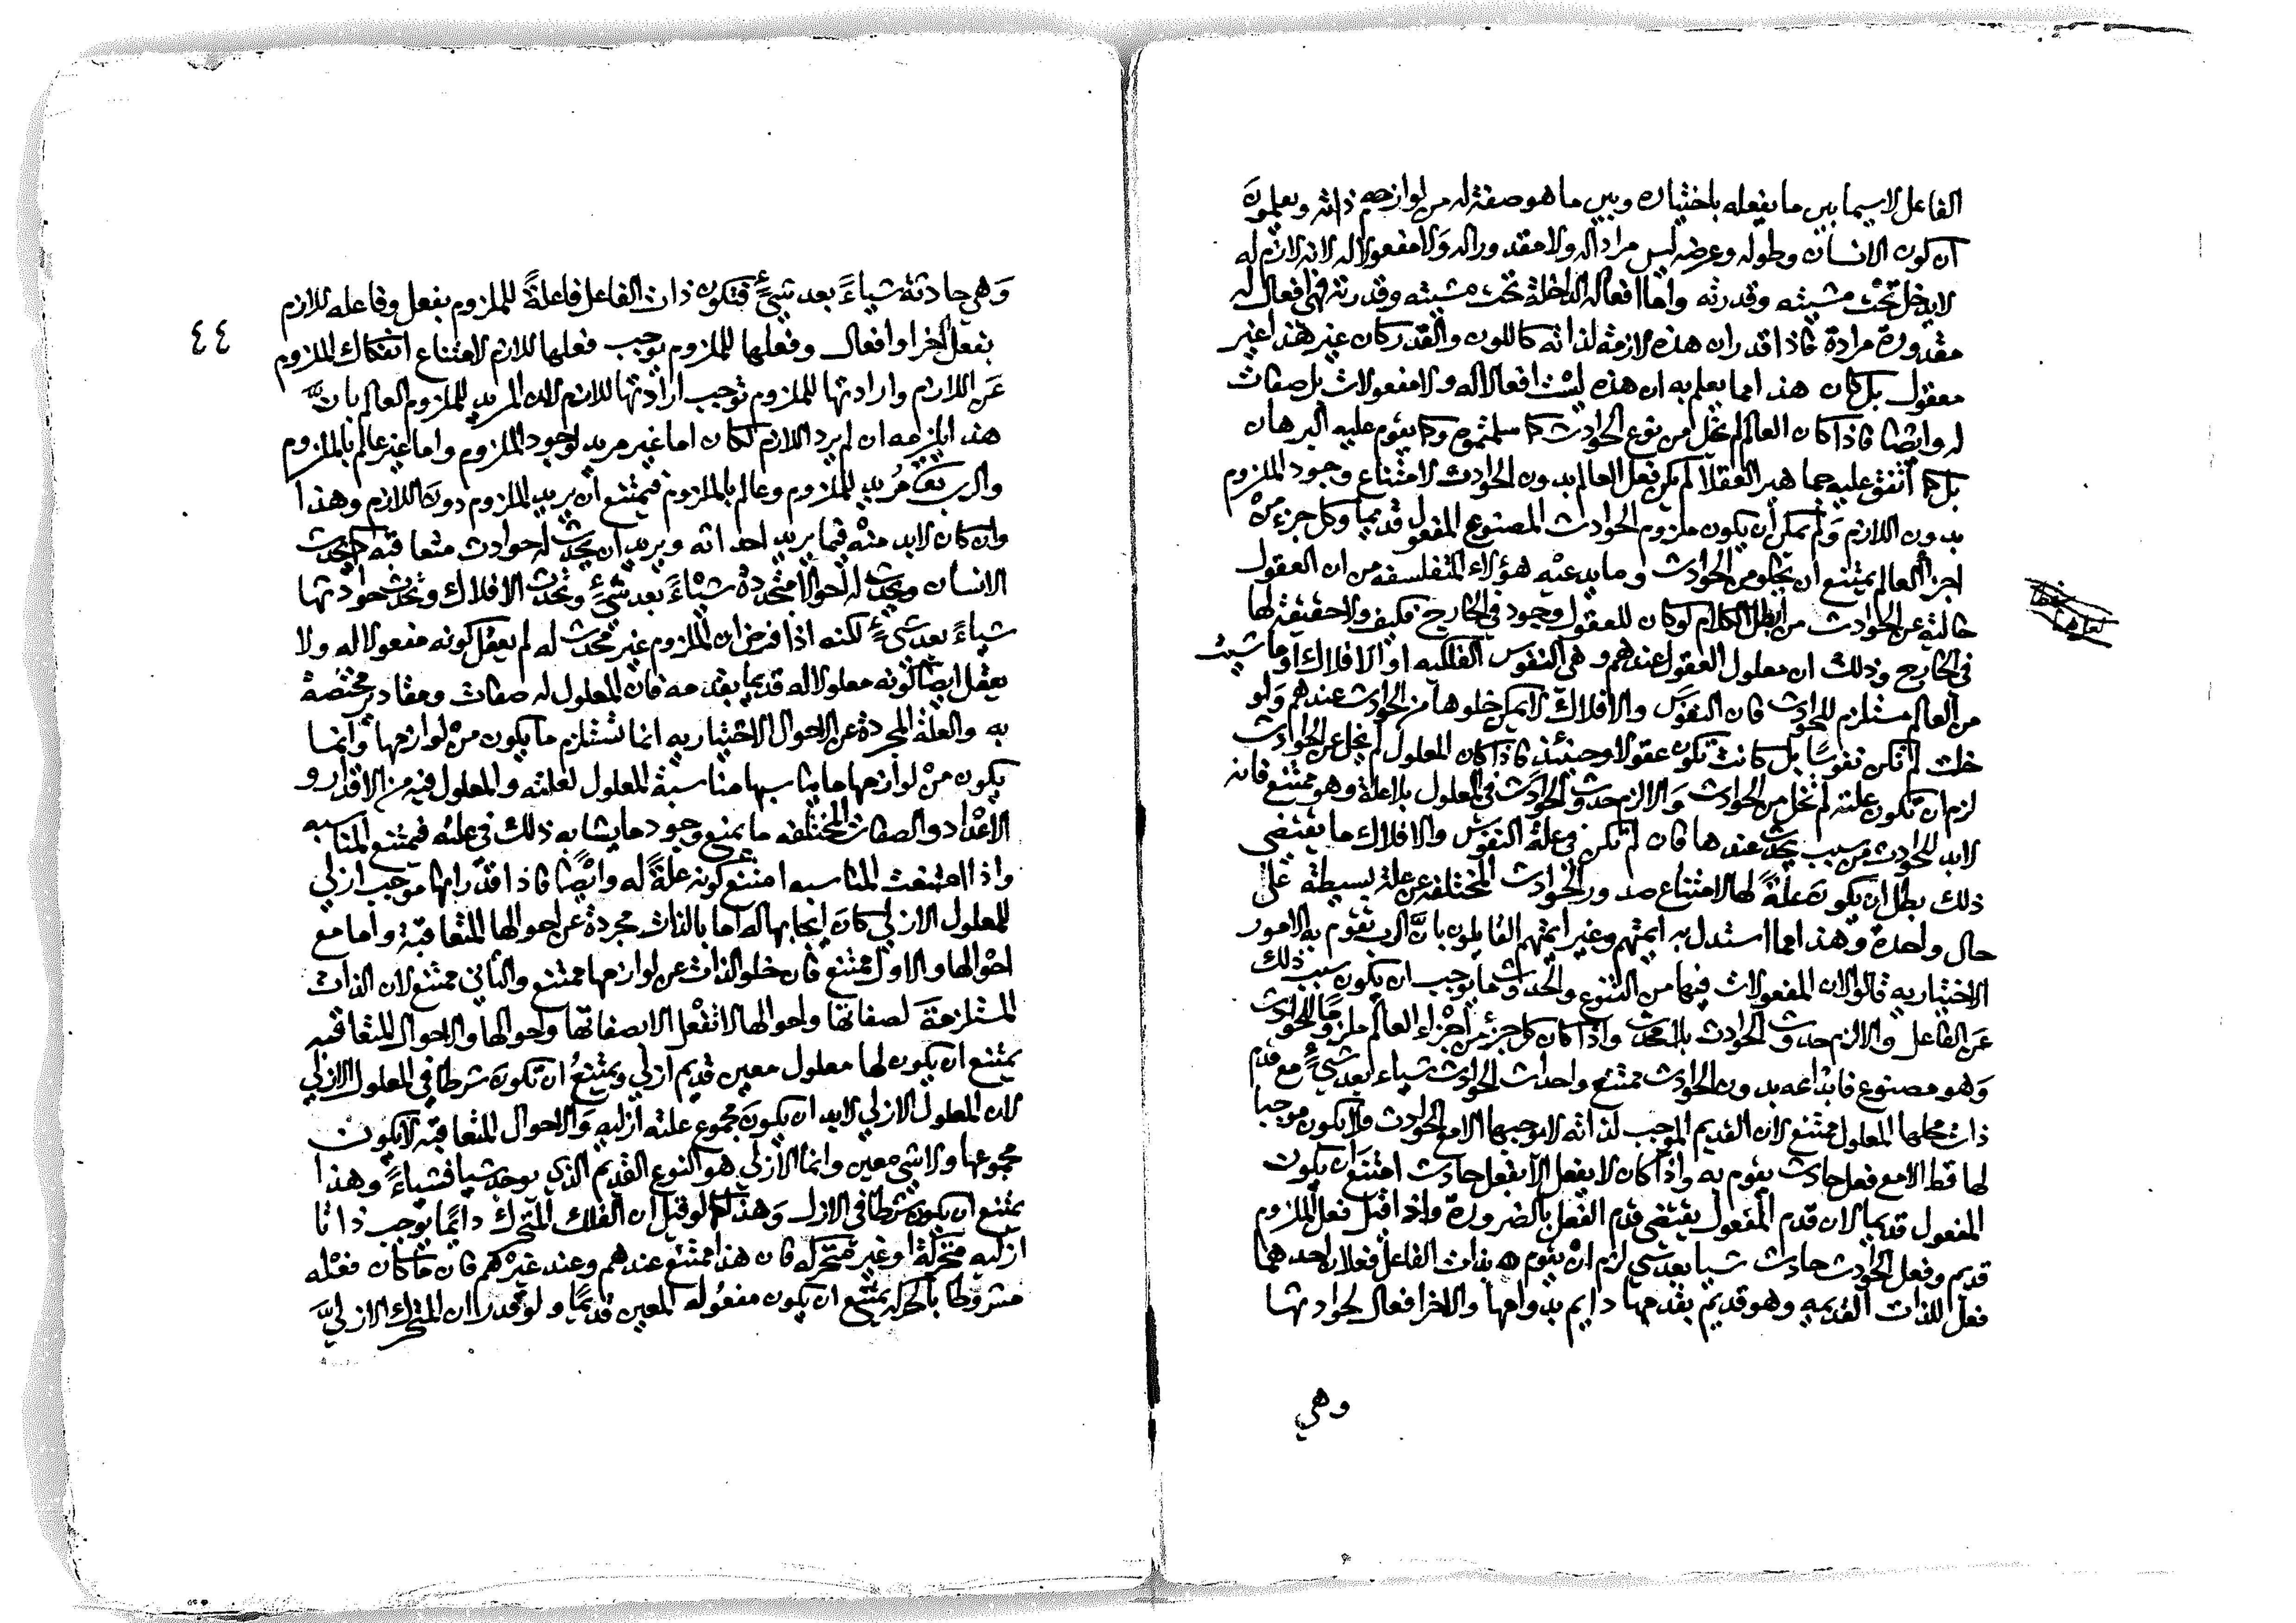 الفاعل لاسيما بين ما يفعله باختياره وبين ما هو صفة له من لوازم ذاته ويعلمون
ان كون الانسان وطوله وعرضه ليس مرادا له ولا مقدورا له ولا مفعولا له لانه لازم له
لا يدخل تحت مشيته وقدرته واما افعاله الداخلة تحت مشيته وقدرته فهي افعال له
مقدورة مرادة فاذا قدر ان هذه لازمة لذاته كاللون والقدر كان غير هذا غير
معقول بل كان هذا مما يعلم به ان هذه ليست افعالا له ولا مفعولات بل صفات
له وايضا فاذا كان العالم لم يخل من نوع الحوادث كما سلمتموه وكما يقوم عليه البرهان
بل كما اتفق عليه جماهير العقلا لم يكن فعل العالم بدون الحوادث لامتناع وجود الملزوم
بدون اللازم ولم يمكن ان يكون ملزوم الحوادث المصنوع المفعول قديما وكل جزء من
اجزا العالم يمتنع ان يخلو من الحوادث وما يدعيه هؤلاء المتفلسفه من ان العقول
خالية عن الحوادث من ابطل الكلام لو كان للعقول وجود في الخارج فكيف ولا حقيقة لها
في الخارج وذلك ان معلول العقول عندهم وهي النفوس الفلكيه او الافلاك او ما شيت
من العالم مستلزم للحوادث فان النفوس والافلاك لا يمكن خلوها من الحوادث عندهم ولو
خلت لم تكن نفوسًا بل كانت تكون عقولا وحينئذ فاذا كان المعلول لم يخل عن الحوادث
لزم ان تكون علته لم تخل من الحوادث والا لزم حدوث الحوادث في المعلول بلا علة وهو ممتنع فانه
لابد للحوادث من سبب يحدث عندها فان لم تكن في علة النفوس والافلاك ما يقتضي
ذلك بطل ان يكون علةً لها لامتناع صدور الحوادث المختلفه عن علة بسيطة على
حال واحدة وهذا مما استدل به ايمتهم وغير ايمتهم القايلون بان الرب تقوم به الامور
الاختياريه قالوا لان المفعولات فيها من التنوع والحدوث ما يوجب ان يكون سبب ذلك
عن الفاعل والا لزم حدوث الحوادث بلا محدث واذا كان كل جزء من اجزاء العالم ملزوما للحوادث
وهو مصنوع فابداعه بدون الحوادث ممتنع واحداث الحوادث شياء بعد شيءٍ مع قدم
ذات محلها المعلول ممتنع لان القديم الموجب لذاته لا يوجبها الا مع الحوادث ولا يكون موجبا
لها قط الا مع فعل حادث يقوم به واذا كان لا يفعل الا بفعل حادث امتنع ان يكون
المفعول قديما لان قدم المفعول يقتضي قدم الفعل بالضرورة واذا قيل فعل الملزوم
قديم وفعل الحوادث حادث شيا بعد شي لزم ان يقوم بذات الفاعل فعلان احدهما
فعل للذات القديمه وهو قديم بقدمها دايم بدوامها والاخر افعال لحوادثها
وهي
٤٤
وهي حادثة شياءً بعد شيءٍ فتكون ذات الفاعل فاعلةً للملزوم بفعل وفاعله للازم
بفعل اخر او افعال وفعلها للملزوم يوجب فعلها للازم لامتناع انفكاك الملزوم
عن اللازم وارادتها للملزوم توجب ارادتها للازم لان المريد للملزوم العالم بان
هذا يلزمه ان لم يرد اللازم لكان اما غير مريد لوجود الملزوم واما غير عالم بالملزوم
والرب تعالى مُريد للملزوم وعالم بالملزوم فيمتنع ان يريد الملزوم دون اللازم وهذا
وان كان لابد منه فيما يريد احداثه ويريد ان يحدث له حوادث متعاقبه كما يحدث
الانسان ويحدث له احوالا متجددة شياءً بعد شيءٍ ويحدث الافلاك ويحدث حوادثها
شياءً بعد شيءٍ لكنه اذا فرض ان الملزوم غير محدث له لم يعقل كونه مفعولا له ولا
يعقل ايضا كونه معلولا له قديما بقدمه فان المعلول له صفات ومقادير مختصة
به والعلة المجردة عن الاحوال الاختياريه انما تستلزم ما يكون من لوازمها وانما
يكون من لوازمها ما يناسبها مناسبة المعلول لعلته والمعلول فيه من الاقدار و
الاعداد والصفات المختلفه ما يمنع وجود ما يشابه ذلك في علته فيمتنع المناسبه
واذا امتنعت المناسبه امتنع كونه علةً له وايضًا فاذا قدر انها موجب ازلي
للمعلول الازلي كان ايجابها له اما بالذات مجردة عن احوالها المتعاقبة واما مع
احوالها والاول ممتنع فان خلو الذات عن لوازمها ممتنع والثاني ممتنع لان الذات
المستلزمة لصفاتها واحوالها لا تفعل الا بصفاتها واحوالها والاحوال المتعاقبه
يمتنع ان يكون لها معلول معين قديم ازلي ويمتنع ان تكون شرطا في المعلول الازلي
لان المعلول الازلي لابد ان يكون مجموع علته ازليه والاحوال المتعاقبه لا يكون
مجموعها ولا شي معين وانما الازلي هو النوع القديم الذي يوجد شيا فشياءً وهذا
يمتنع ان يكون شرطا في الازل وهذا كما لو قيل ان الفلك المتحرك دائمًا يوجب ذاتا
ازليه متحركة او غير متحركه فان هذا ممتنع عندهم وعند غيرهم فان ما كان فعله
مشروطا بالحركه يمتنع ان يكون مفعوله المعين قديمًا ولو قدر ان المتحرك الازليَّ